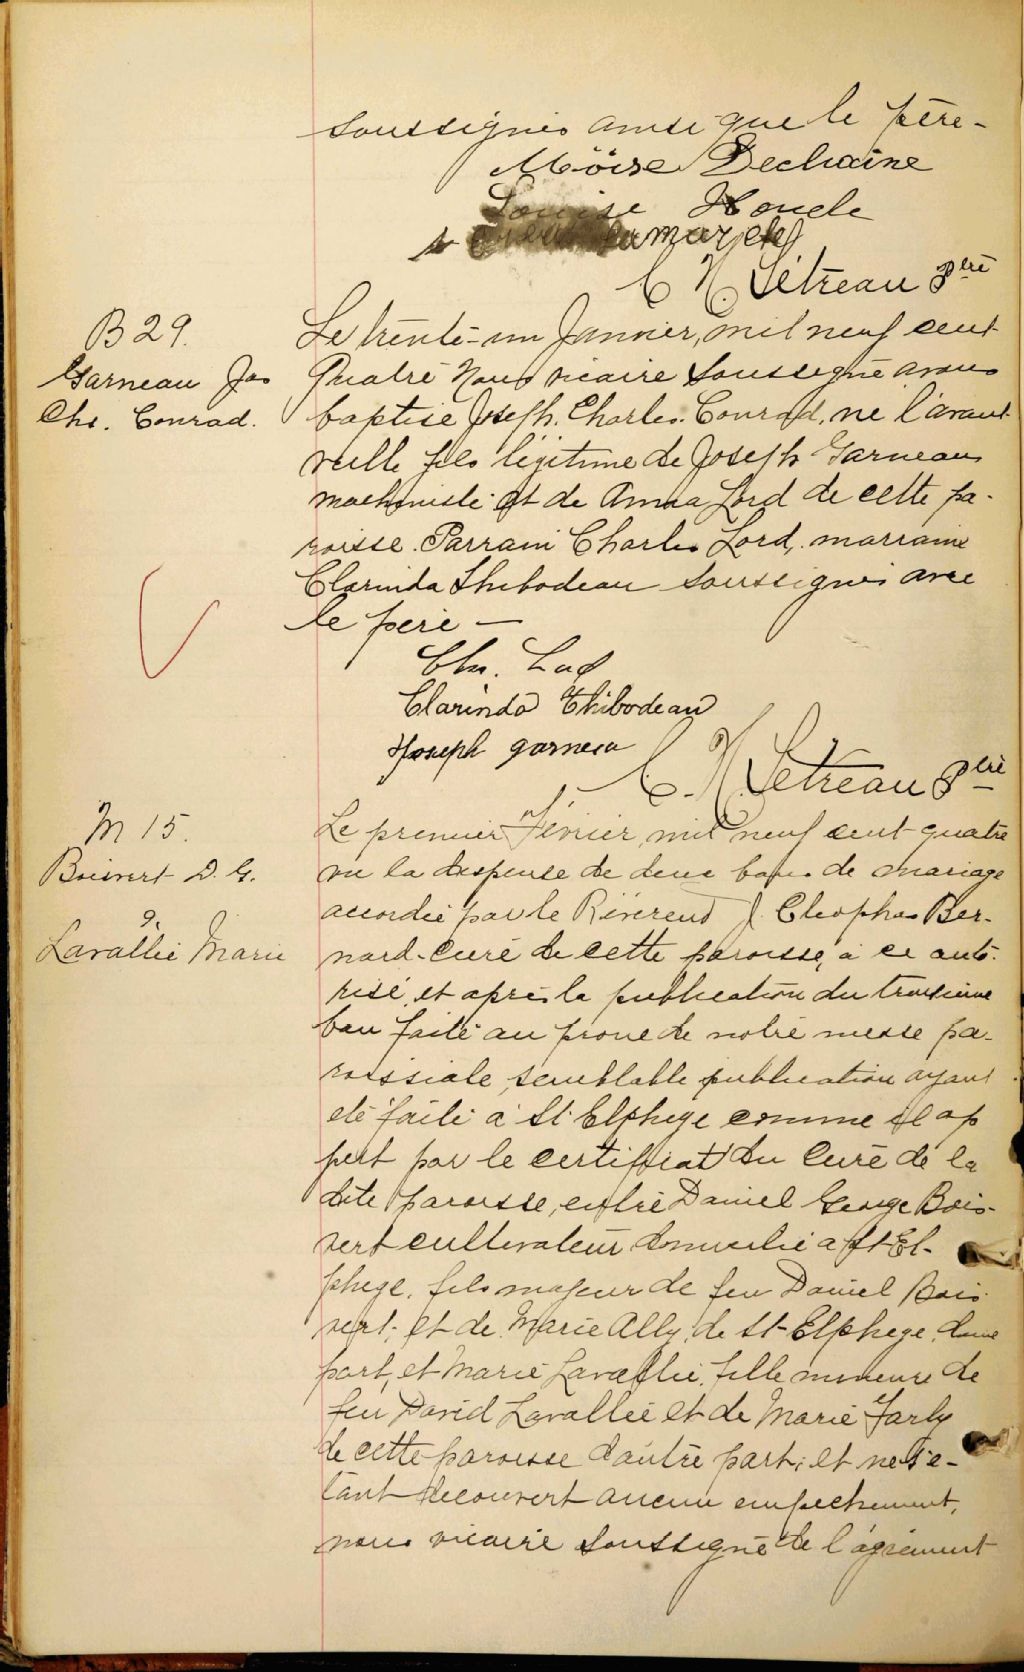 soussignés ainsi que le père -
Möise Dechaine
Louise Houde
C. N. Létreau Ptre
B 29.
Garneau Jos
Chs. Conrad.
Le trente-un Janvier, mil neuf cent
quatre Nous vicaire soussigné avons
baptisé Joseph. Charles. Conrad, né l'avant
veille fils légitime de Joseph Garneau
machiniste et de Anna Lord de cette pa-
roisse. Parrain Charles Lord, marraine
Clarinda Thibodeau soussignés avec
le père —
Chs. Lord
Clarinda Thibodeau
Joseph garneau
C. N. Létreau Ptre
M 15.
Boisvert D. G.
&
Lavallée Marie
Le premier Février, mil neuf cent quatre
vu la dispense de deux bans de mariage
accordée par le Révérend J. Cleophas Ber-
nard curé de cette paroisse, à ce auto-
risé, et après la publication du troisième
ban faite au prone de notre messe pa-
roissiale, semblable publication ayant
été faite à St Elphege comme il ap
pert par le certificat du Curé de la
dite paroisse, entre Daniel George Bois-
vert cultivateur domicilié à St-El-
phege, fils majeur de feu Daniel Bois
vert, et de Marie Ally de St-Elphege d'une
part, et Marie Lavallée, fille mineure de
feu David Lavallée et de Marie Farly
de cette paroisse d'autre part; et ne s'é-
tant découvert aucun empêchement,
nous vicaire soussigné de l'agrément